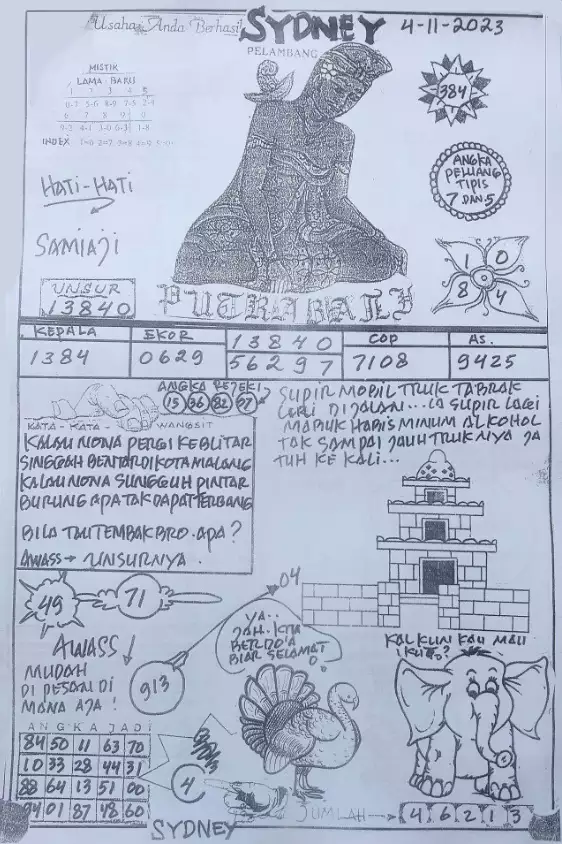 Usaha Anda Berhasil SYDNEY 4-11-2023
PELAMBANG
MISTIK
LAMA - BARU
INDEX
HATI-HATI
SAMIAJI
UNSUR
13840
384
ANGKA
PELUANG
TIPIS
7 DAN 5
1 0
8 4
PUTRA BALI
KEPALA EKOR 13840 COP AS.
1384 0629 56297 7108 9425
ANGKA REJEKI
15 36 82 97
KATA - KATA - WANGSIT
KALAU NONA PERGI KE BLITAR
SINGGAH BENTAR DI KOTA MALANG
KALAU NONA SUNGGUH PINTAR
BURUNG APA TAK DAPAT TERBANG
BILA TAU TEMBAK BRO. APA?
AWASS → UNSURNYA.
SUPIR MOBIL TRUK TABRAK
LARI DIJALAN...LA SUPIR LAGI
MABUK HABIS MINUM ALKOHOL
TAK SAMPAI JAUH TRUKNYA JA
TUH KE KALI...
49 71
04
AWASS
MUDAH
DI PESAN DI
MANA AJA!
913
YA..
JAH. KITA
BERDO'A
BIAR SELAMAT
KALKUN KAU MAU
IKUT?
ANGKA JADI
84 50 11 63 70
10 33 28 44 31
88 64 13 51 00
94 01 87 48 60
4
JUMLAH → 4 6 2 1 3
SYDNEY